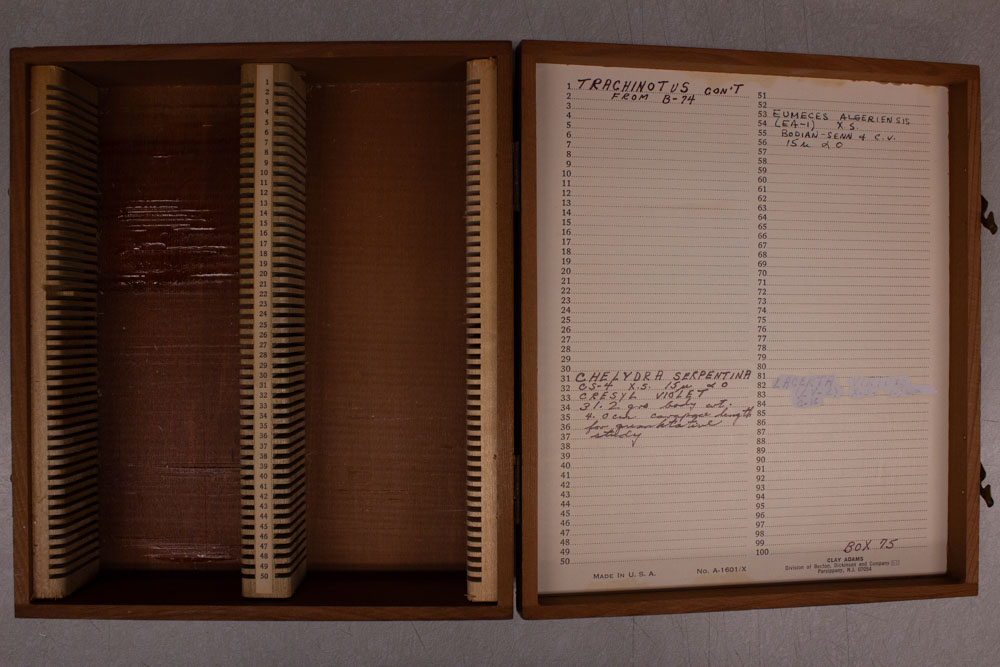 1
2
3
4
5
6
7
8
9
10
11
12
13
14
15
16
17
18
19
20
21
22
23
24
25
26
27
28
29
30
31
32
33
34
35
36
37
38
39
40
41
42
43
44
45
46
47
48
49
50
1 TRACHINOTUS CON'T
2 FROM B-74
3
4
5
6
7
8
9
10
11
12
13
14
15
16
17
18
19
20
21
22
23
24
25
26
27
28
29
30
31 CHELYDRA SERPENTINA
32 CS-4 X.S. 15µ LO
33 CRESYL VIOLET
34 31.2 gms body wt.
35 4.0 cm carapace length
36 for quantatative
37 study
38
39
40
41
42
43
44
45
46
47
48
49
50
51
52
53 EUMECES ALGERIENSIS
54 (EA-1) X.S.
55 BODIAN-SENN & C.V.
56 15µ LO
57
58
59
60
61
62
63
64
65
66
67
68
69
70
71
72
73
74
75
76
77
78
79
80
81
82
83
84
85
86
87
88
89
90
91
92
93
94
95
96
97
98
99
100
BOX 75
MADE IN U. S. A.
No. A-1601/X
CLAY ADAMS
Division of Becton, Dickinson and Company B-D
Parsippany, N.J. 07054